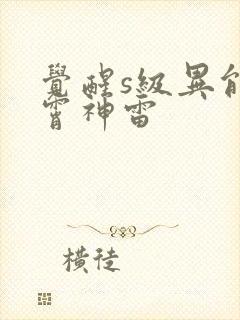 覺醒s級異能
霄神雷
橫徒